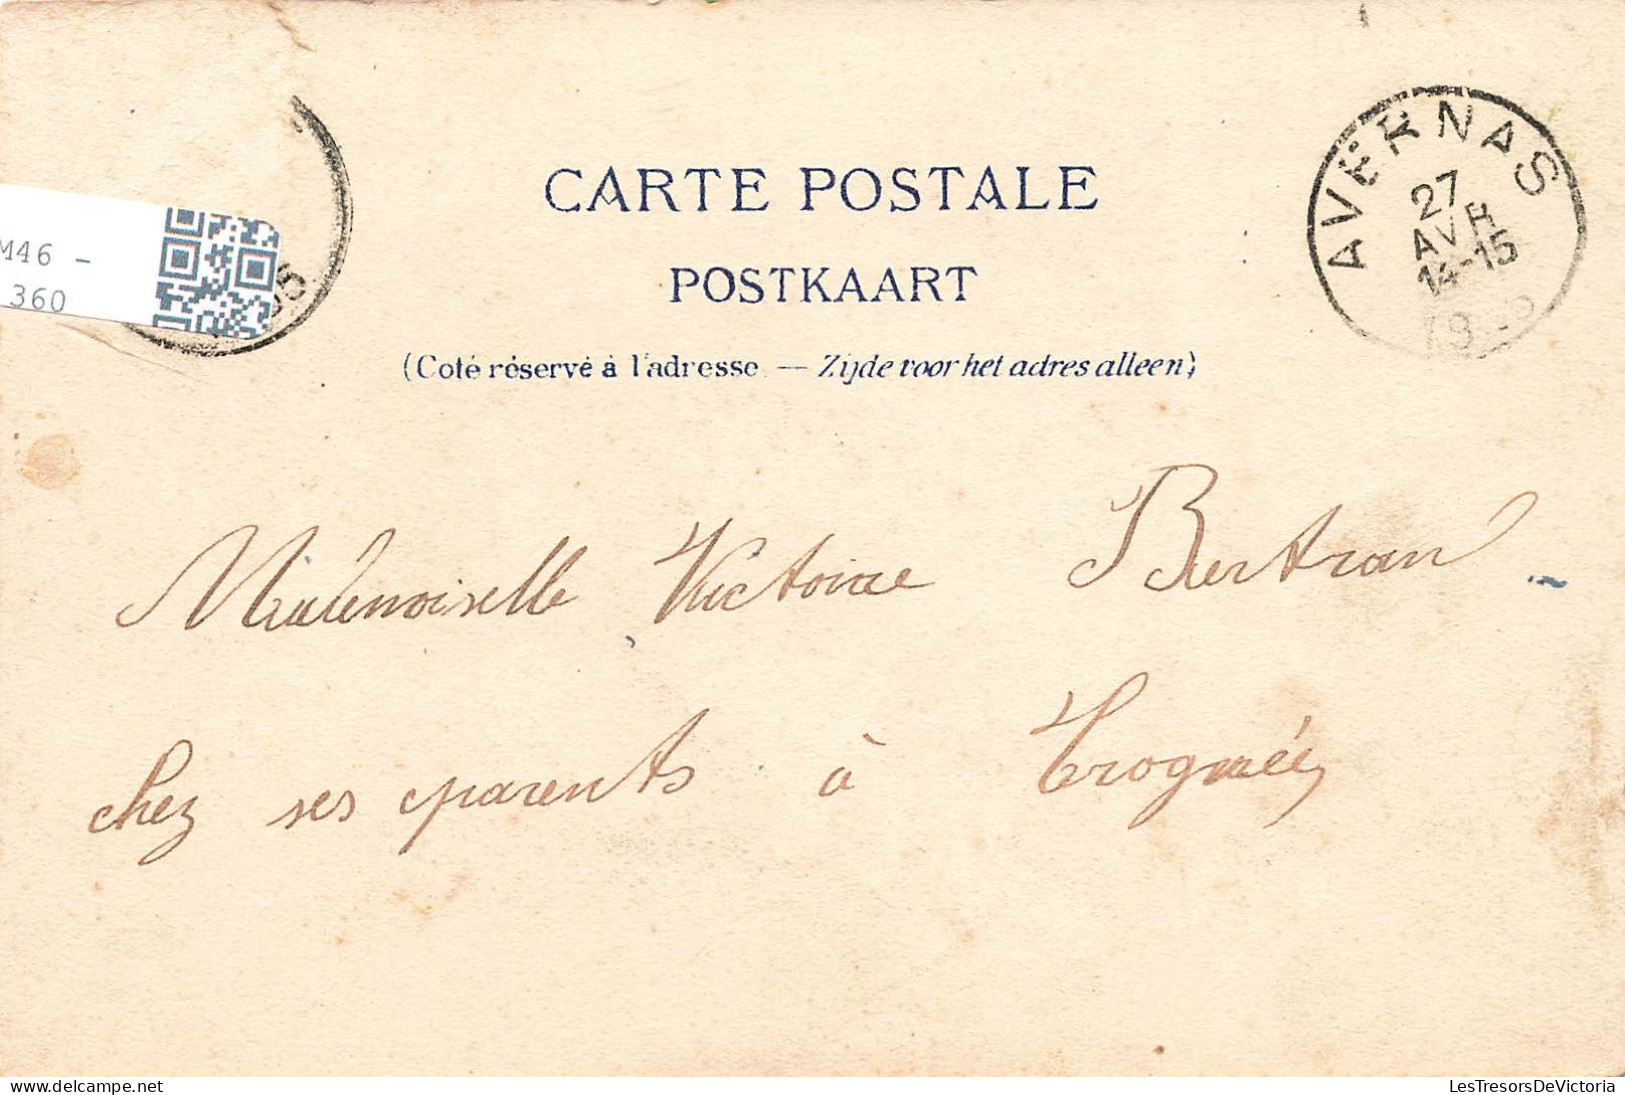 CARTE POSTALE
POSTKAART
(Coté réservé à l'adresse. — Zijde voor het adres alleen)
AVERNAS
27
AVR
14-15
19
05
M46 -
360
Mademoiselle Victoire Bertran
chez ses parents à Trognée
www.delcampe.net
LesTresorsDeVictoria